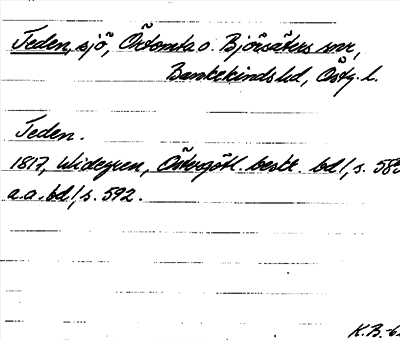 Teden, sjö, Örtomta o. Björsäters snr,
Bankekinds hd, Östg. l.
Teden.
1817, Widegren, Östergötl. beskr. bd 1, s. 583
a.a. bd 1, s. 592.
K.B.-6